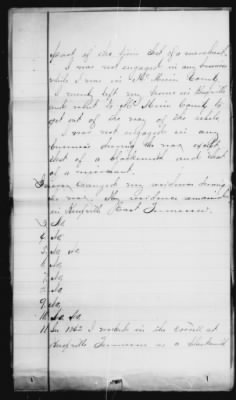 part of the time that of a merchant.
I was not engaged in any business
while I was in Mc Minn County
I merely left my home in Knoxville
and went to Mc Minn County to
get out of the way of the rebels.
I was not engaged in any
business during the war except
that of a Blacksmith and that
of a merchant.
I never changed my residence during
the war. My residence remained
in Knoxville East Tennessee.
3. No
4. No
5. No No
6. No
7. No
8. No
9. No,
10. No, No
11. In 1862 I worked in the
at
Knoxville Tennessee as a Blacksmith